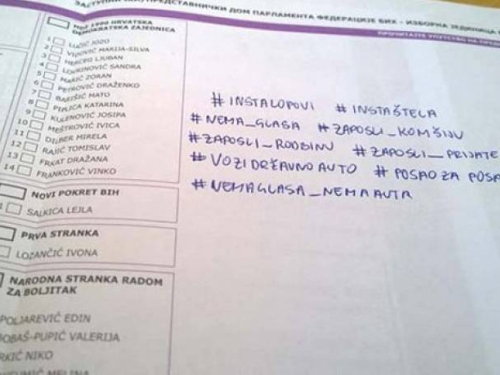 ПРЕДСТАВНИЧКИ ДОМ ПАРЛАМЕНТА ФЕДЕРАЦИЈЕ БИХ - ИЗБОРНА ЈЕДИНИЦА
ПРОЧИТАЈТЕ УПУТСТВО НА
HDZ 1990 HRVATSKA
DEMOKRATSKA ZAJEDNICA
1 LUČIĆ JOZO
2 VIDOVIĆ MARIJA-SILVA
3 HERCEG LJUBAN
4 SANDRA
5 MARIĆ ZORAN
6 PETROVIĆ DRAŽENKO
7 BARIŠIĆ MATO
8 PIPLICA KATARINA
9 KULENOVIĆ JOSIPA
10 MEŠTROVIĆ IVICA
11 DILBER MIRELA
12 RAJIĆ TOMISLAV
13 FRKAT DRAŽANA
14 FRANKOVIĆ VINKO
NOVI POKRET BIH
1 SALKICA LEJLA
PRVA STRANKA
LOZANČIĆ IVONA
NARODNA STRANKA RADOM
ZA BOLJITAK
POLJAREVIĆ EDIN
BOBAŠ-PUPIĆ VALERIJA
RKIĆ NIKO
MELINA
# INSTALOPOVI # INSTAŠTELA
# NEMA_GLASA # ZAPOSLI_KOMŠIJU
# ZAPOSLI_RODBINU # ZAPOSLI_PRIJATE
# VOZI DRŽAVNO AUTO # POSAO ZA POSA
# NEMAGLASA_NEMAAUTA